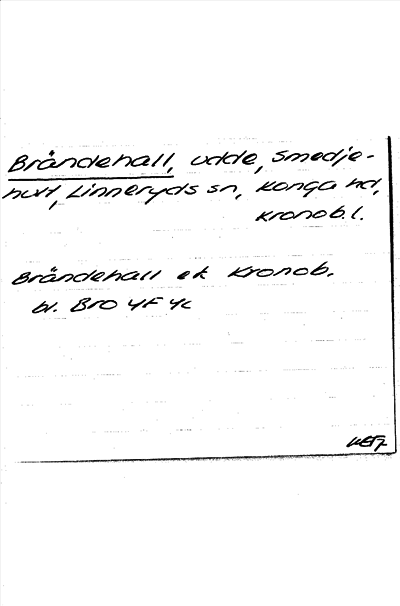 Brändehall, udde, Smedje-
hult, Linneryds sn, Konga hd,
Kronob. l.
Brändehall ek Kronob.
bl. Bro 4F 4c